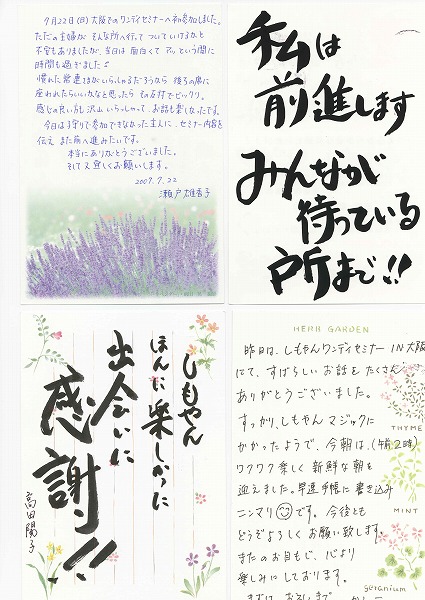 7月22日(日)大阪でのワンディセミナーへ初参加しました。
ただの主婦が そんな所へ行って ついていけるかと
不安もありましたが、当日は面白くて アッという間に
時間も過ぎました♪
慣れた常連さまがいらっしゃるだろうから 後ろの席に
座れたらいいかなと思ったら その名付でビックリ。
感じの良い方も沢山いらっしゃって、お話も楽しかったです。
今日は留守りで参加できなかった主人に、セミナー内容を
伝え また前へ進みたいです。
本当にありがとうございました。
そして又宜しくお願いします。
2007.7.22
瀬戸
私は
前進します
みんなが
待っている
所まで!!
しもやん
ほんに楽しかった
出会いに
感謝!!
高田陽子
HERB GARDEN
昨日は、しもやんワンディセミナー IN 大阪
にて、すばらしいお話をたくさん
ありがとうございました。
すっかり、しもやんマジックに
かかったようで、今朝は、(午前2時)
ワクワク楽しく 新鮮な朝を
迎えました。早速手帳に書き込み
ニンマリ です。今後とも
どうぞよろしくお願い致します。
またのお目もじ、心より
楽しみにしております。
THYME
MINT
geranium